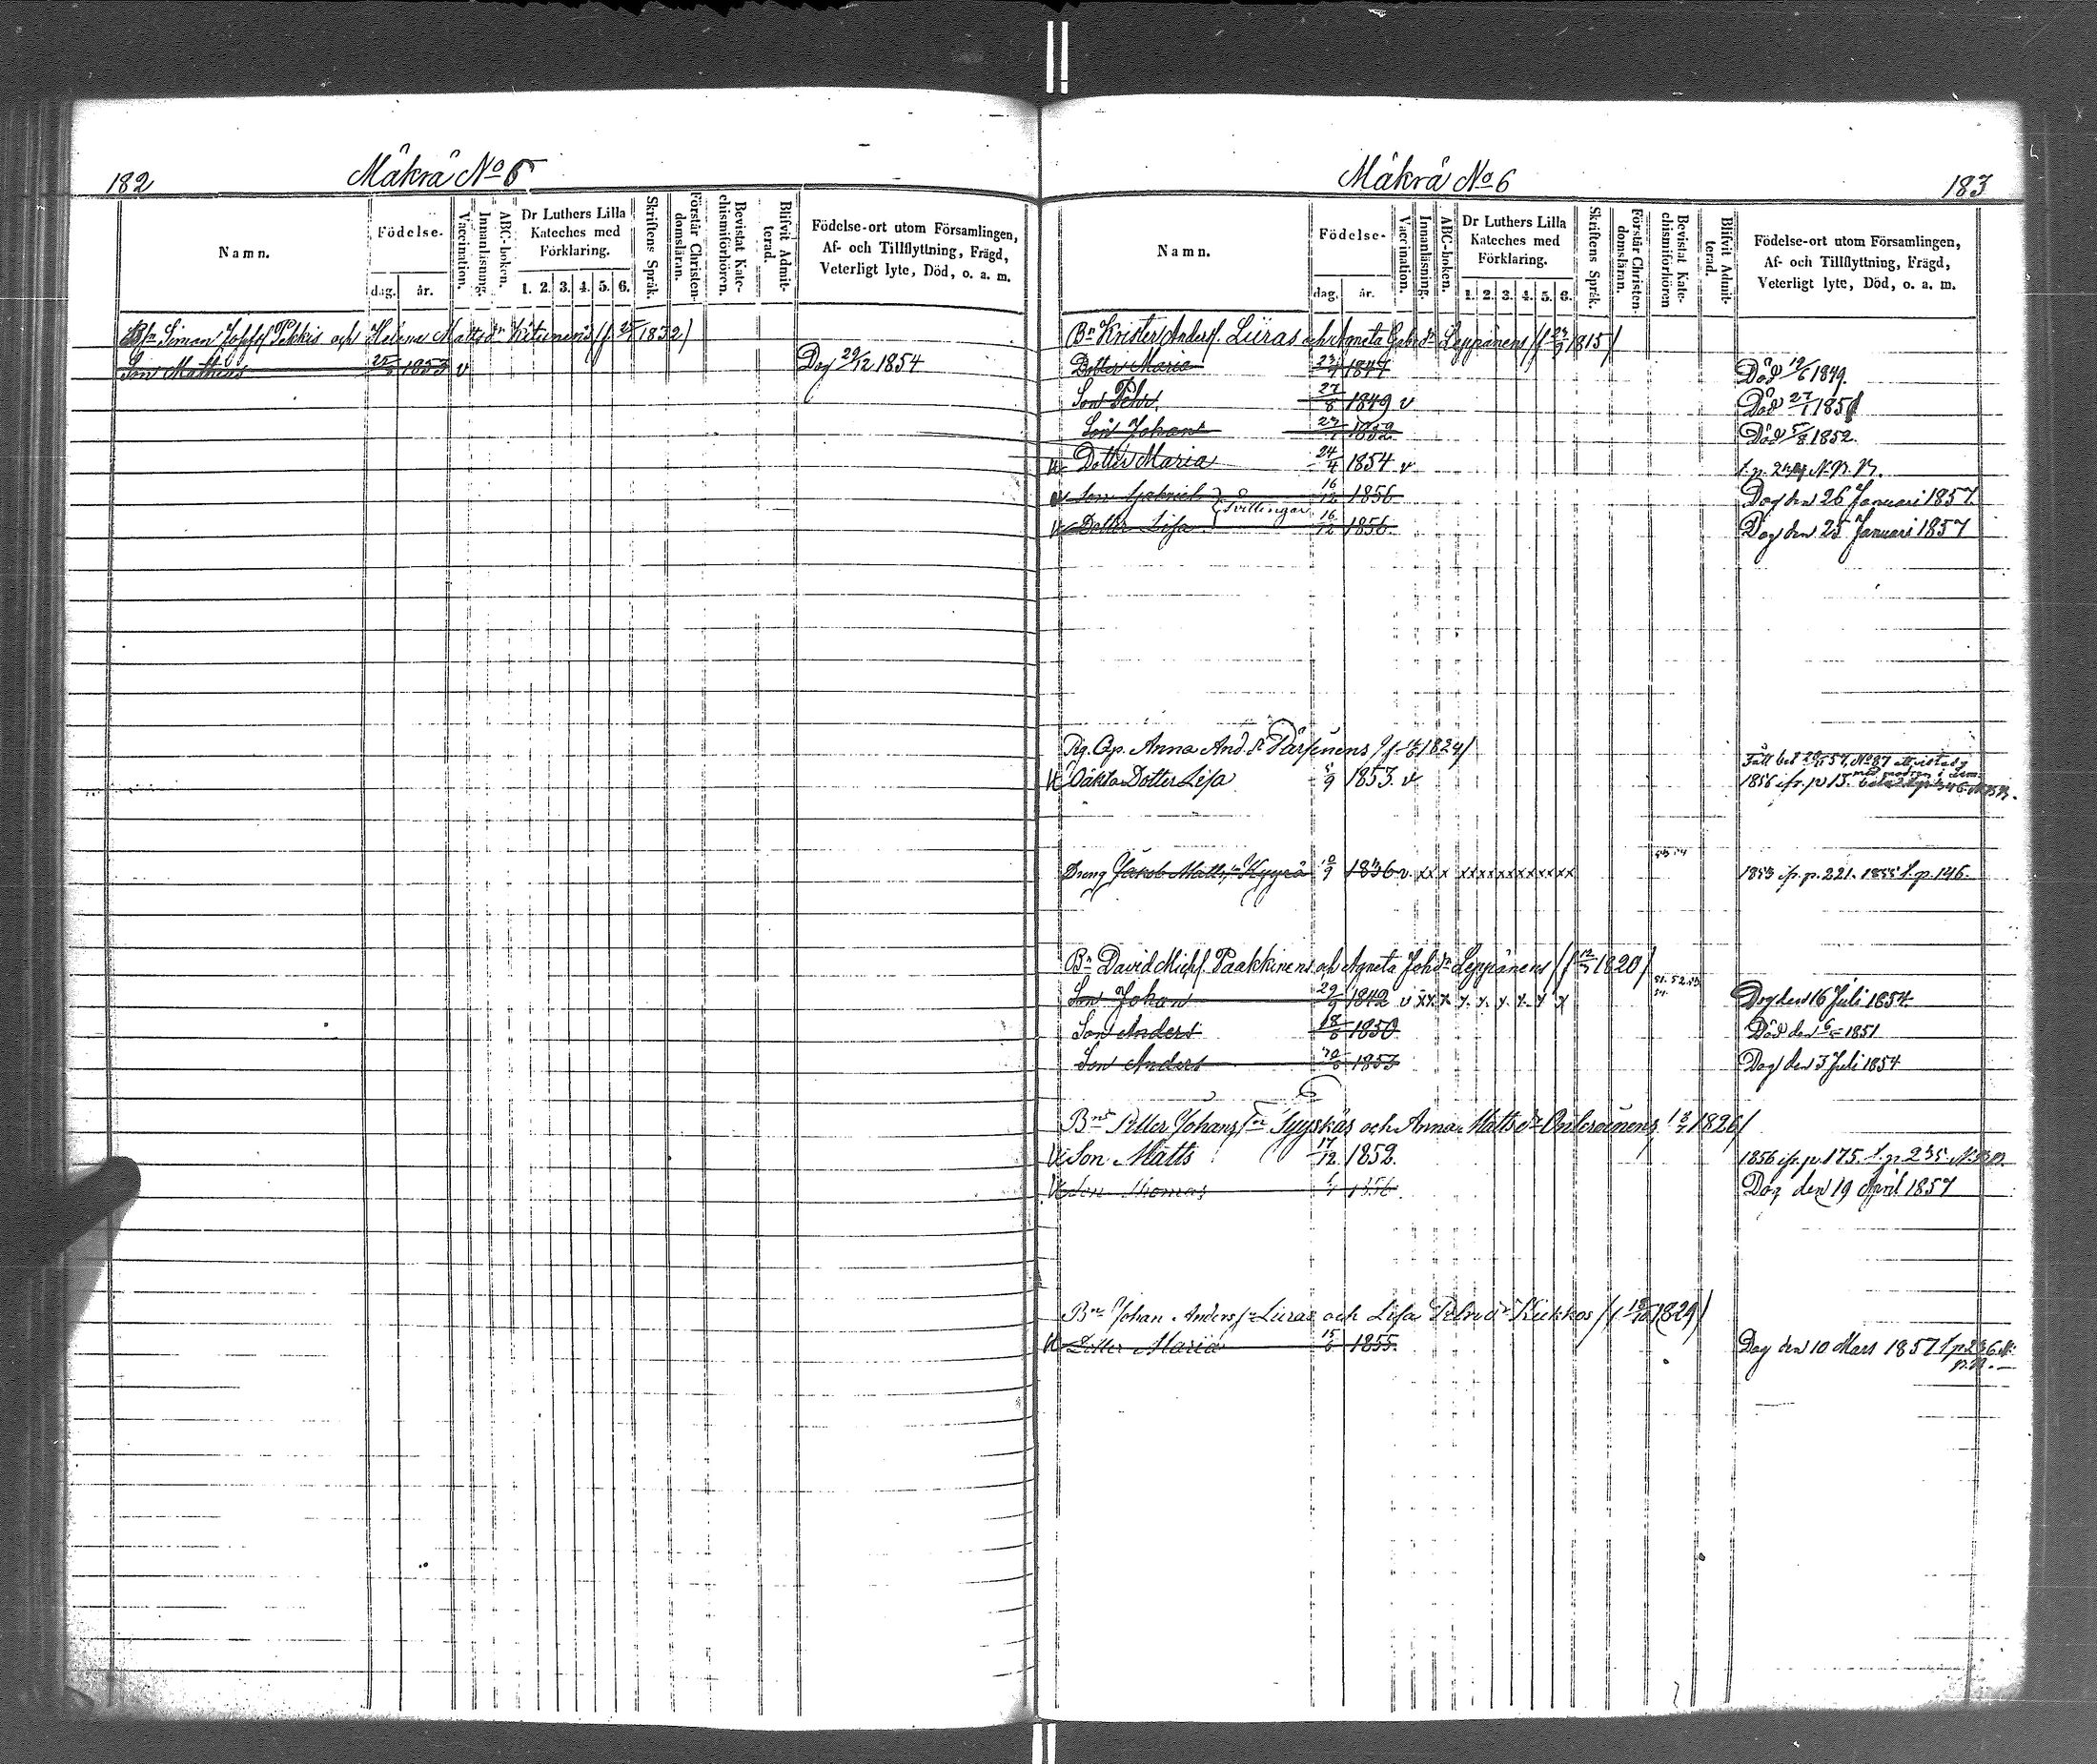 182
Mäkrä No 5
Namn.
Födelse-
dag.
år.
Vaccination.
Innanläsning.
ABC-boken.
Dr Luthers Lilla
Kateches med
Förklaring.
1. 2. 3. 4. 5. 6.
Skriftens Språk.
Förstår Christen-
domsläran.
Bevistat Kate-
chismiförhören.
Blifvit Admit-
terad.
Födelse-ort utom Församlingen,
Af- och Tillflyttning, Frägd,
Veterligt lyte, Död, o. a. m.
Simon Josefss Pekkis och Helena Mattsdr 1832)
Son Mathias 1853 v Dog 29/12 1854
Mäkrä No 6
183
Namn.
Födelse-
dag.
år.
Vaccination.
Innanläsning.
ABC-boken.
Dr Luthers Lilla
Kateches med
Förklaring.
1. 2. 3. 4. 5. 6.
Skriftens Språk.
Förstår Christen-
domsläran.
Bevistat Kate-
chismiförhören
Blifvit Admit-
terad.
Födelse-ort utom Församlingen,
Af- och Tillflyttning, Frägd,
Veterligt lyte, Död, o. a. m.
Bn Krister Anderss. Liiras och Agneta Leppänens 1815/
Dotter Maria 1847 Död 12/6 1849.
Son Pehr 27/8 1849 v Död 27/1
Son Johan 1852 Död 5/8 1852.
Dotter Maria 24/4 1854 v
Son Gabriel 16/12 1856 Dog den 26 Januari 1857
Tvillingar
Dotter Lisa 16/12 1856 Dog den 25 Januari 1857
Pig. Anna And.dr 1824/
Oäkta Dotter Lisa 9 1853. v 1856
Dreng Jakob Matts.n Kyyrö 9 1836 v xx x x x x x x x x x 1853 p. 221. 1855 p. 146.
Bn David Michs. Paakkinens och Agneta Joh.dr Leppänens 1820/
Son Johan 29/9 1842 v x x x x x x x x x Dog den 16 Juli 1854
Son Anders 18/8 1850 Död den 1851
Son Anders 1853 Dog den 3 Juli 1854
Bn Petter Johans.n Syyskäs och Anna Matts dr 1826/
Son Matts 17/12 1852. 1856 175.
Son Thomas 1856 Dog den 19 April 1857
Bn Johan Anders.n Liiras och Lisa Kukkos 1829/
Dotter Maria 15/6 1855. Dog den 10 Mars 1857